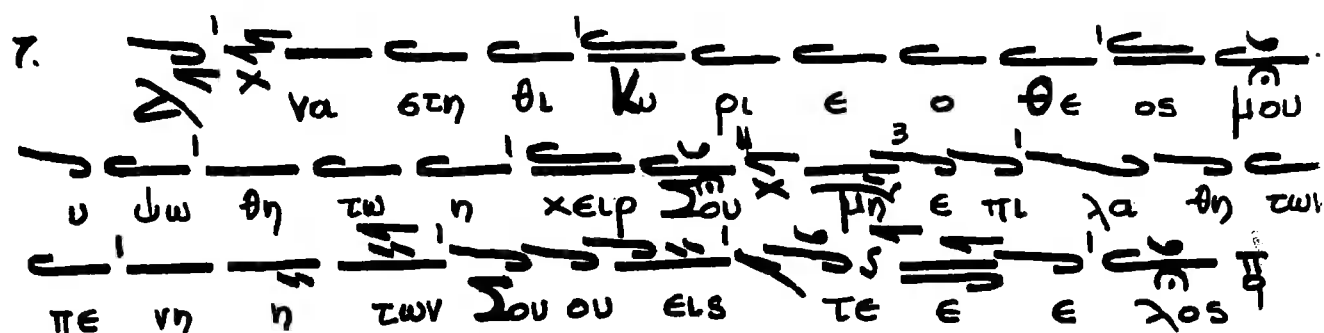 7. να στη θι Κυ ρι ε ο Θε ος μου
υ ψω θη τω η χειρ Σου μη 3 ε πι λα θη των
πε νη η των Σου ου εις τε ε ε λος